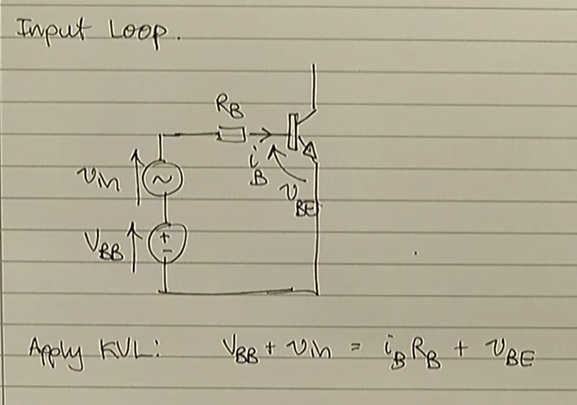 Input Loop.
R_B
i_B
v_in
v_BE
V_BB
+
-
Apply KVL: V_BB + v_in = i_B R_B + v_BE